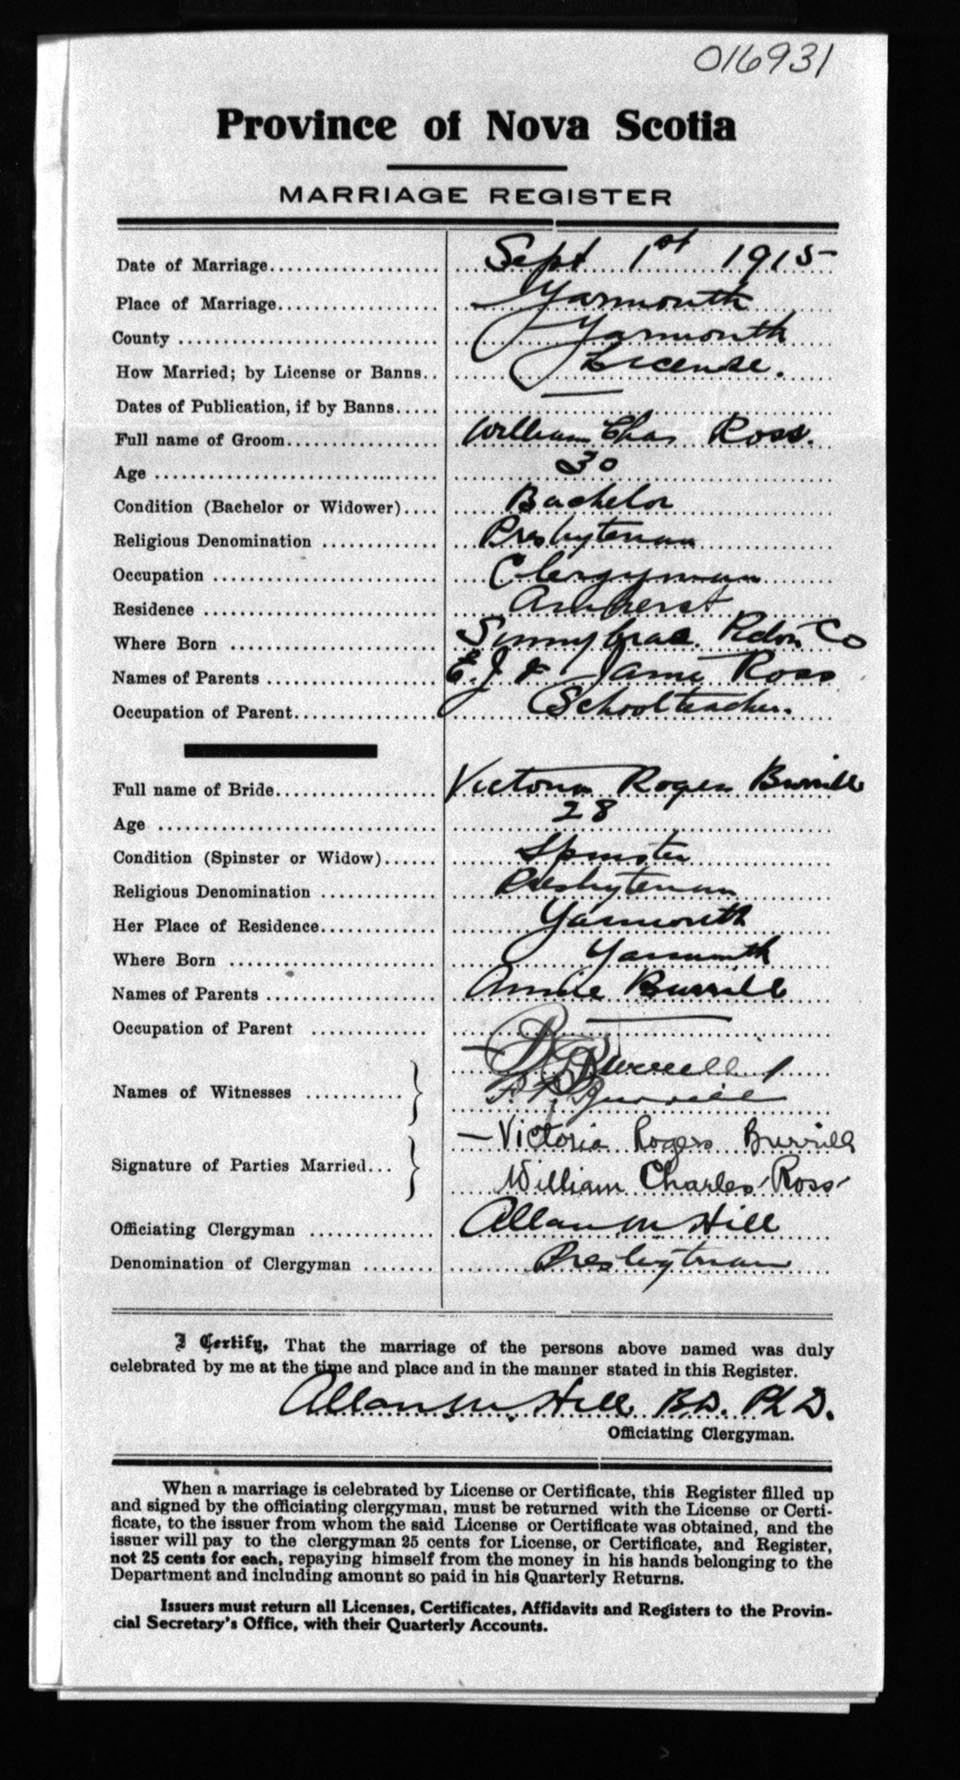 016931
Province of Nova Scotia
MARRIAGE REGISTER
Date of Marriage................... Sept 1st 1915
Place of Marriage................... Yarmouth
County ............................. Yarmouth
How Married; by License or Banns.. License.
Dates of Publication, if by Banns.....
Full name of Groom.................. William Chas Ross.
Age ................................ 30
Condition (Bachelor or Widower).... Bachelor
Religious Denomination ............. Presbyterian
Occupation ......................... Clergyman
Residence .......................... Amherst
Where Born ......................... Sunnybrae. Co
Names of Parents ................... E. J & Ross
Occupation of Parent................ Schoolteacher.
Full name of Bride.................. Victoria Rogers Burrill
Age ................................ 28
Condition (Spinster or Widow)...... Spinster
Religious Denomination ............. Presbyterian
Her Place of Residence............. Yarmouth
Where Born ......................... Yarmouth
Names of Parents ................... Annie Burrill
Occupation of Parent ..............
Burrell
Names of Witnesses ........... } Burrill
Victoria Rogers Burrill
Signature of Parties Married... }
William Charles Ross
Officiating Clergyman .............. Allan M Hill
Denomination of Clergyman ........ Presbyterian
I Certify, That the marriage of the persons above named was duly
celebrated by me at the time and place and in the manner stated in this Register.
Allan M. Hill B.D. Ph D.
Officiating Clergyman.
When a marriage is celebrated by License or Certificate, this Register filled up
and signed by the officiating clergyman, must be returned with the License or Certi-
ficate, to the issuer from whom the said License or Certificate was obtained, and the
issuer will pay to the clergyman 25 cents for License, or Certificate, and Register,
not 25 cents for each, repaying himself from the money in his hands belonging to the
Department and including amount so paid in his Quarterly Returns.
Issuers must return all Licenses, Certificates, Affidavits and Registers to the Provin-
cial Secretary's Office, with their Quarterly Accounts.